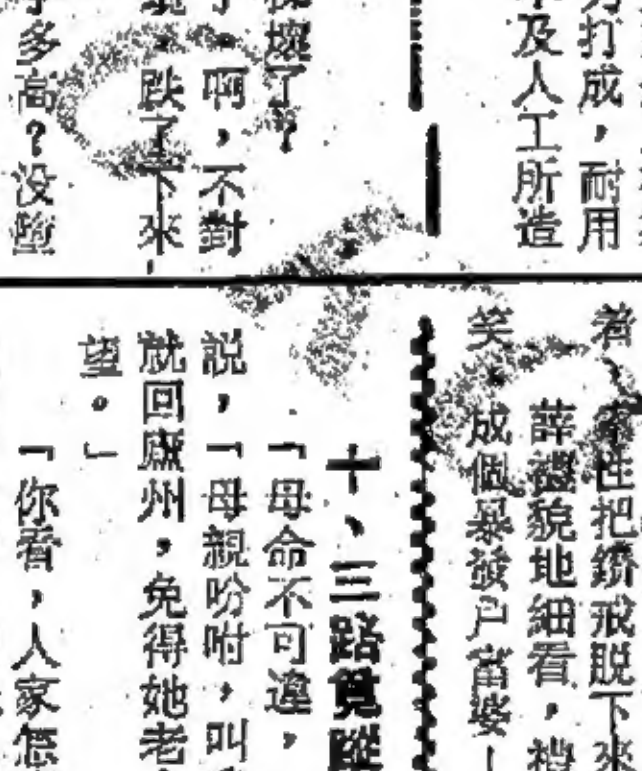 力打成，耐用
不及人工所造
壞了？
啊，不對
跌了下來
多高？没墮
者，索性把鑽戒脱下來
薛禮貌地細看，禮
笑。成個暴發户富婆
十、三路覓蹤
「母命不可違，
説，「母親吩咐，叫
就回廬州，免得她老
望。」
「你看，人家怎